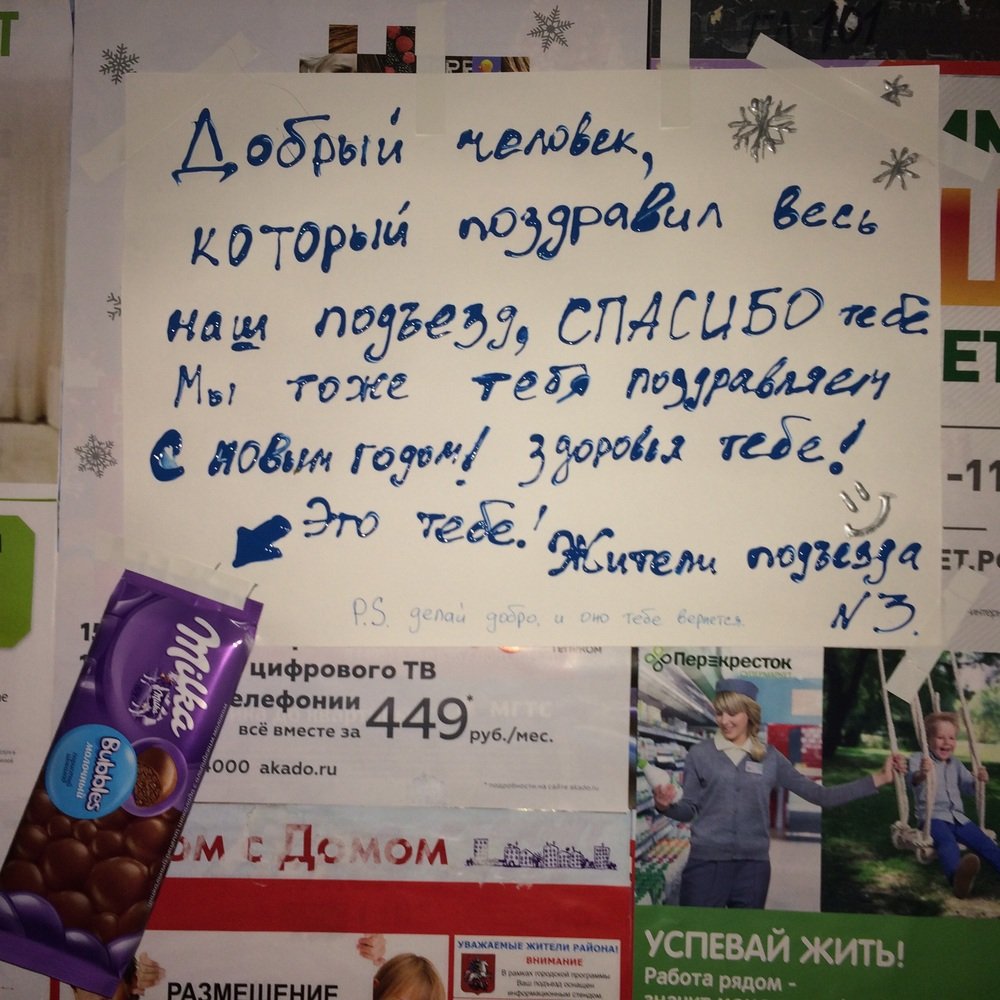 Добрый человек,
который поздравил весь
наш подъезд, СПАСИБО тебе
Мы тоже тебя поздравляем
С новым годом! Здоровья тебе!
Это тебе!
Жители подъезда
N 3.
P.S. делай добро, и оно тебе вернется.
Milka
Bubbles
молочный
цифрового ТВ
елефонии
всё вместе за 449* руб./мес.
000 akado.ru
* подробности на сайте akado.ru
МГТС
ом с Домом
РАЗМЕЩЕНИЕ
УВАЖАЕМЫЕ ЖИТЕЛИ РАЙОНА!
ВНИМАНИЕ
В рамках городской программы
Ваш подъезд оснащен
информационным стендом.
Перекресток
УСПЕВАЙ ЖИТЬ!
Работа рядом -
значит
ЕТ
-11
ЕТ.РФ
101